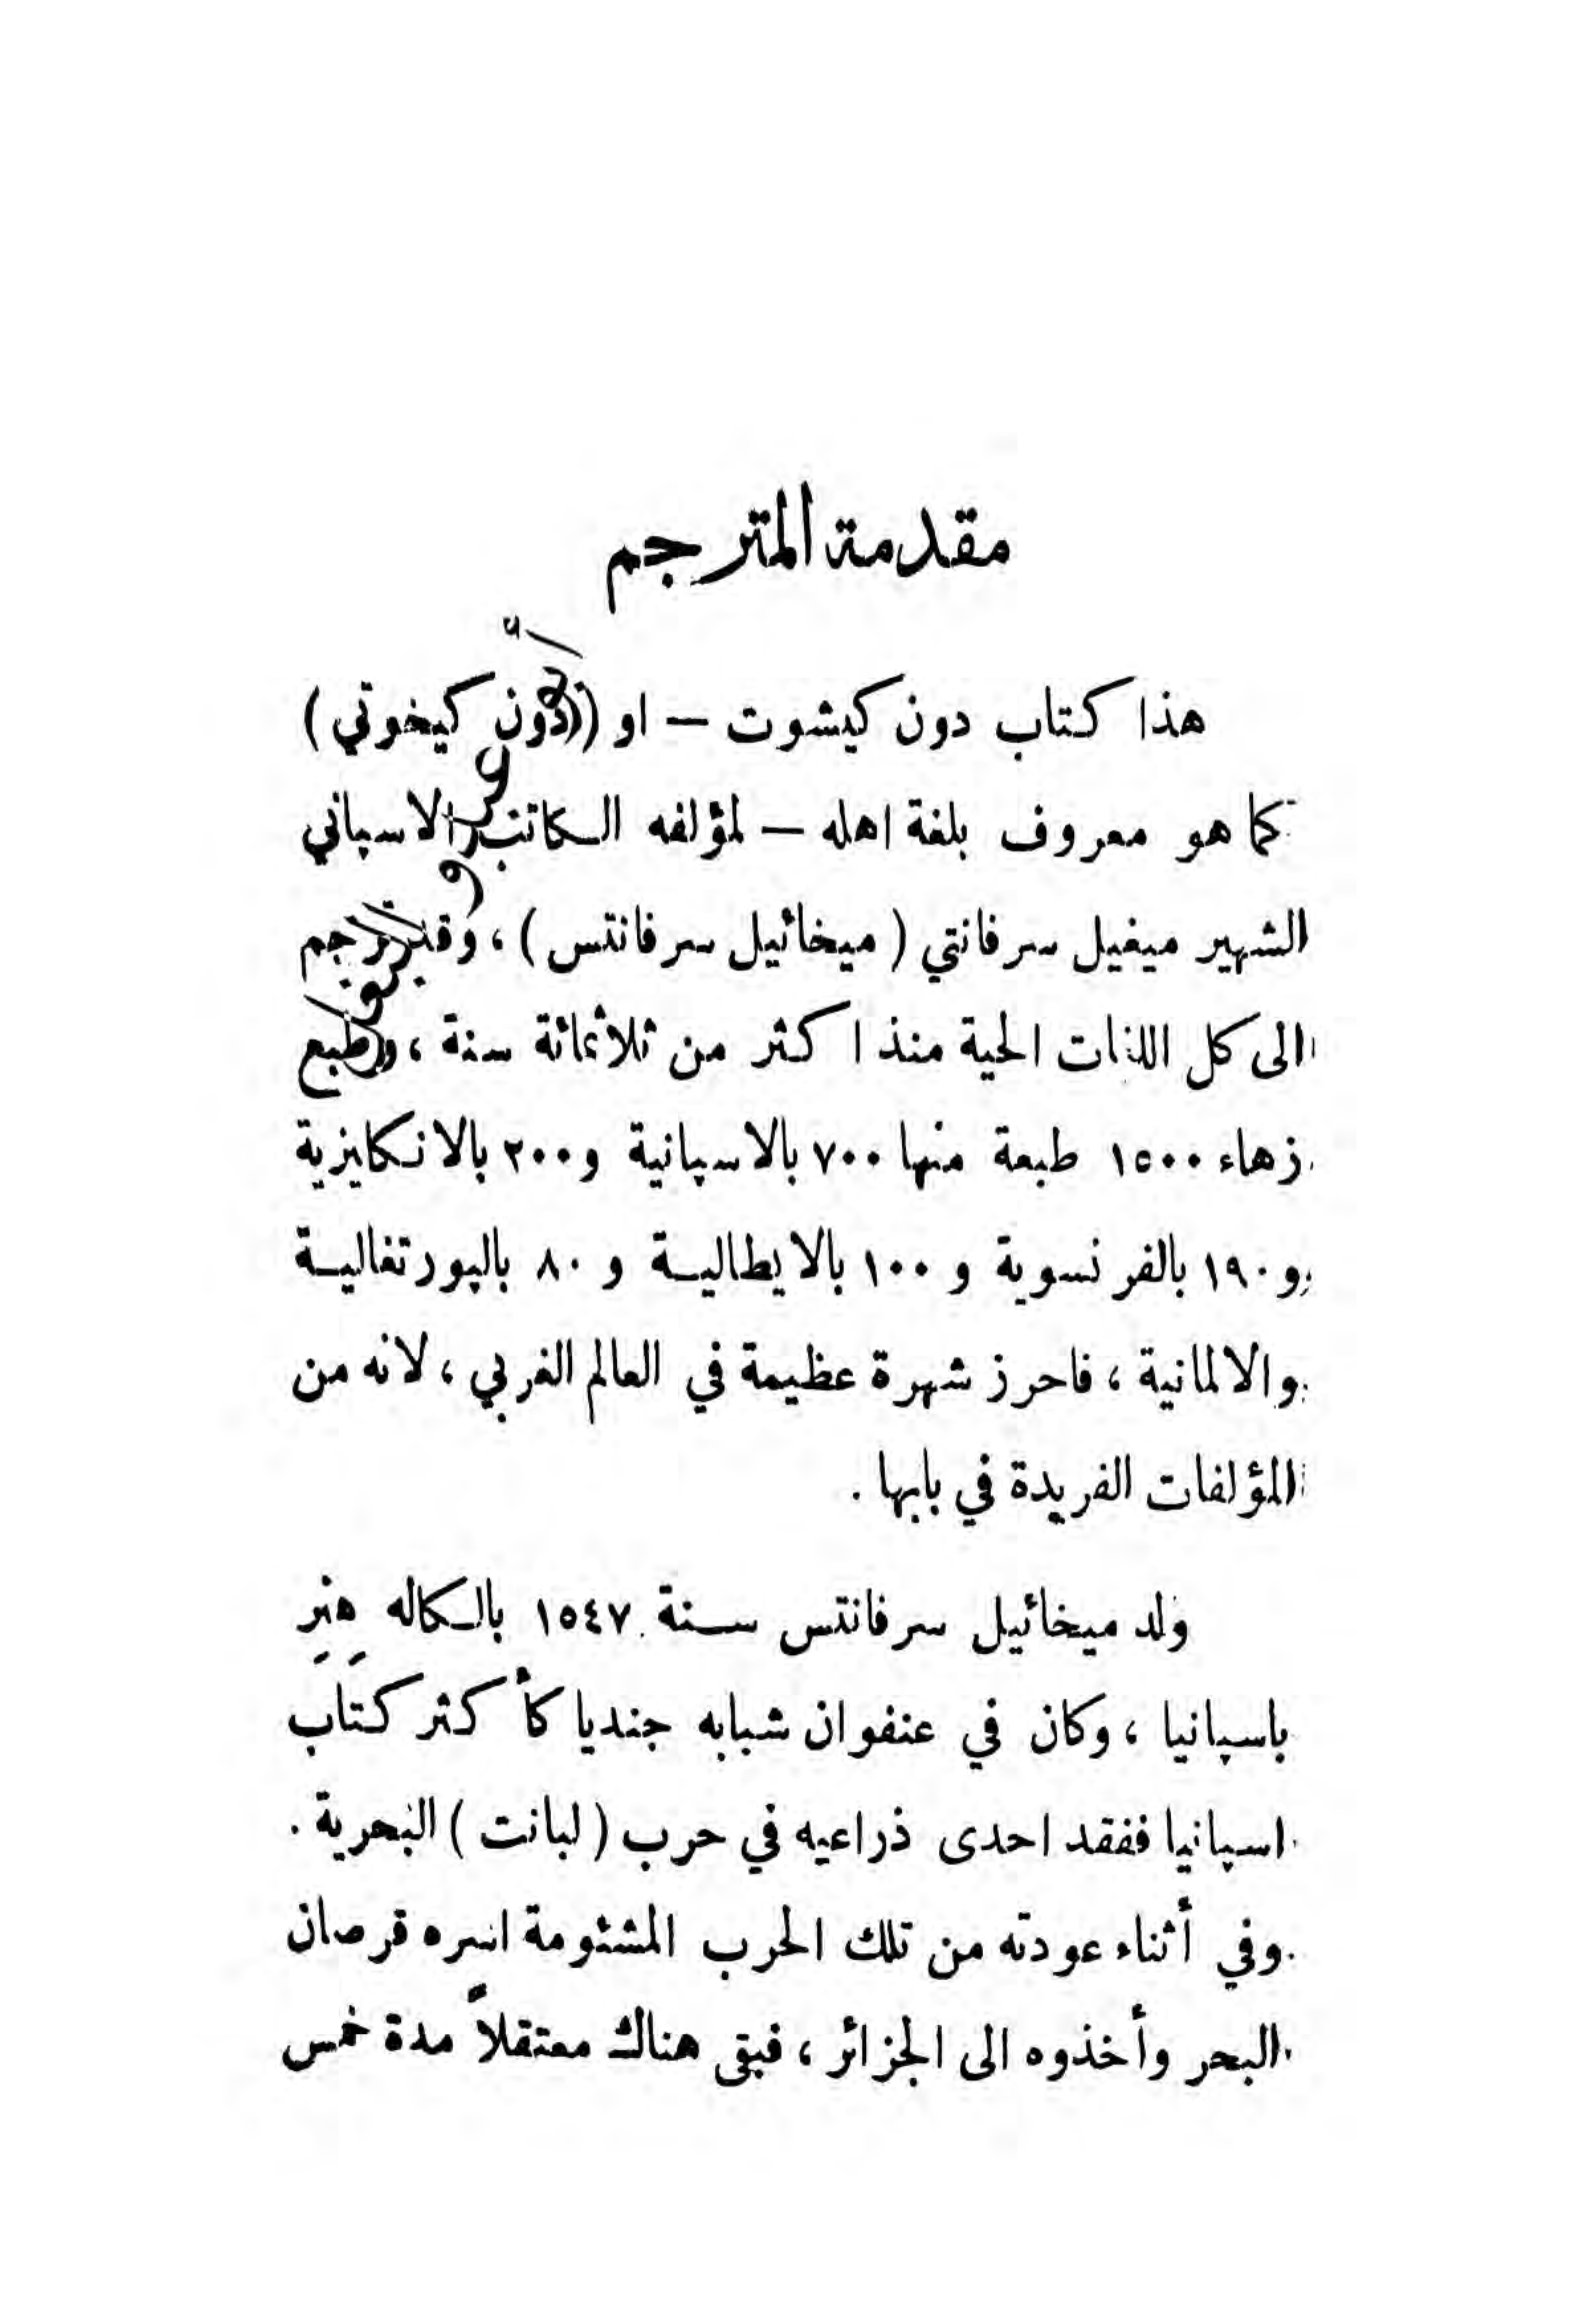 مقدمة المترجم
هذا كتاب دون كيشوت – او ((دون كيخوتي)
كما هو معروف بلغة اهله – لمؤلفه الكاتب الاسباني
الشهير ميغيل سرفانتي (ميخائيل سرفانتس)، وقد ترجم
الى كل اللغات الحية منذ اكثر من ثلاثمائة سنة، وطبع
زهاء ١٥٠٠ طبعة منها ٧٠٠ بالاسبانية و٢٠٠ بالانكليزية
و١٩٠ بالفرنسوية و ١٠٠ بالايطالية و ٨٠ بالپورتغالية
والالمانية، فاحرز شهرة عظيمة في العالم الغربي، لانه من
المؤلفات الفريدة في بابها .
ولد ميخائيل سرفانتس سنة ١٥٤٧ بالكاله هنر
باسپانيا، وكان في عنفوان شبابه جنديا كأكثر كتاب
اسپانيا ففقد احدى ذراعيه في حرب (لبانت) البحرية .
وفي أثناء عودته من تلك الحرب المشئومة اسره قرصان
البحر وأخذوه الى الجزائر، فبقى هناك معتقلاً مدة خمس